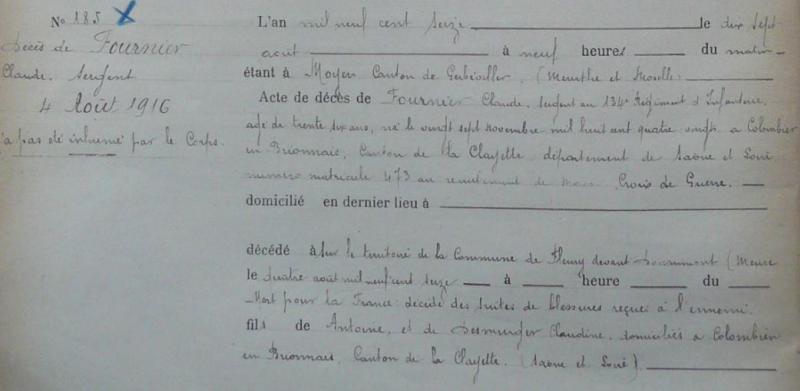 No 185
Décès de Fournier
Claude. Sergent
4 Août 1916
n'a pas été inhumé par le Corps.
L'an mil neuf cent seize le dix sept
août à neuf heures du matin
étant à Moyen Canton de Gerbéviller, (Meurthe et Moselle)
Acte de décès de Fournier Claude. Sergent au 134e Régiment d'Infanterie,
agé de trente six ans, né le vingt sept novembre mil huit cent quatre vingt a Colombier
en Brionnais, Canton de la Clayette département de Saône et Loire
numéro matricule 473 au recrutement de Macon. Croix de Guerre.
domicilié en dernier lieu à
décédé à sur le territoire de la Commune de Fleury devant Douaumont (Meuse
le quatre août mil neuf cent seize à heure du
Mort pour la France: décédé des suites de blessures reçues à l'ennemi.
fils de Antoine, et de Desmurger Claudine. domiciliés a Colombier
en Brionnais, Canton de la Clayette. (Saône et Loire)